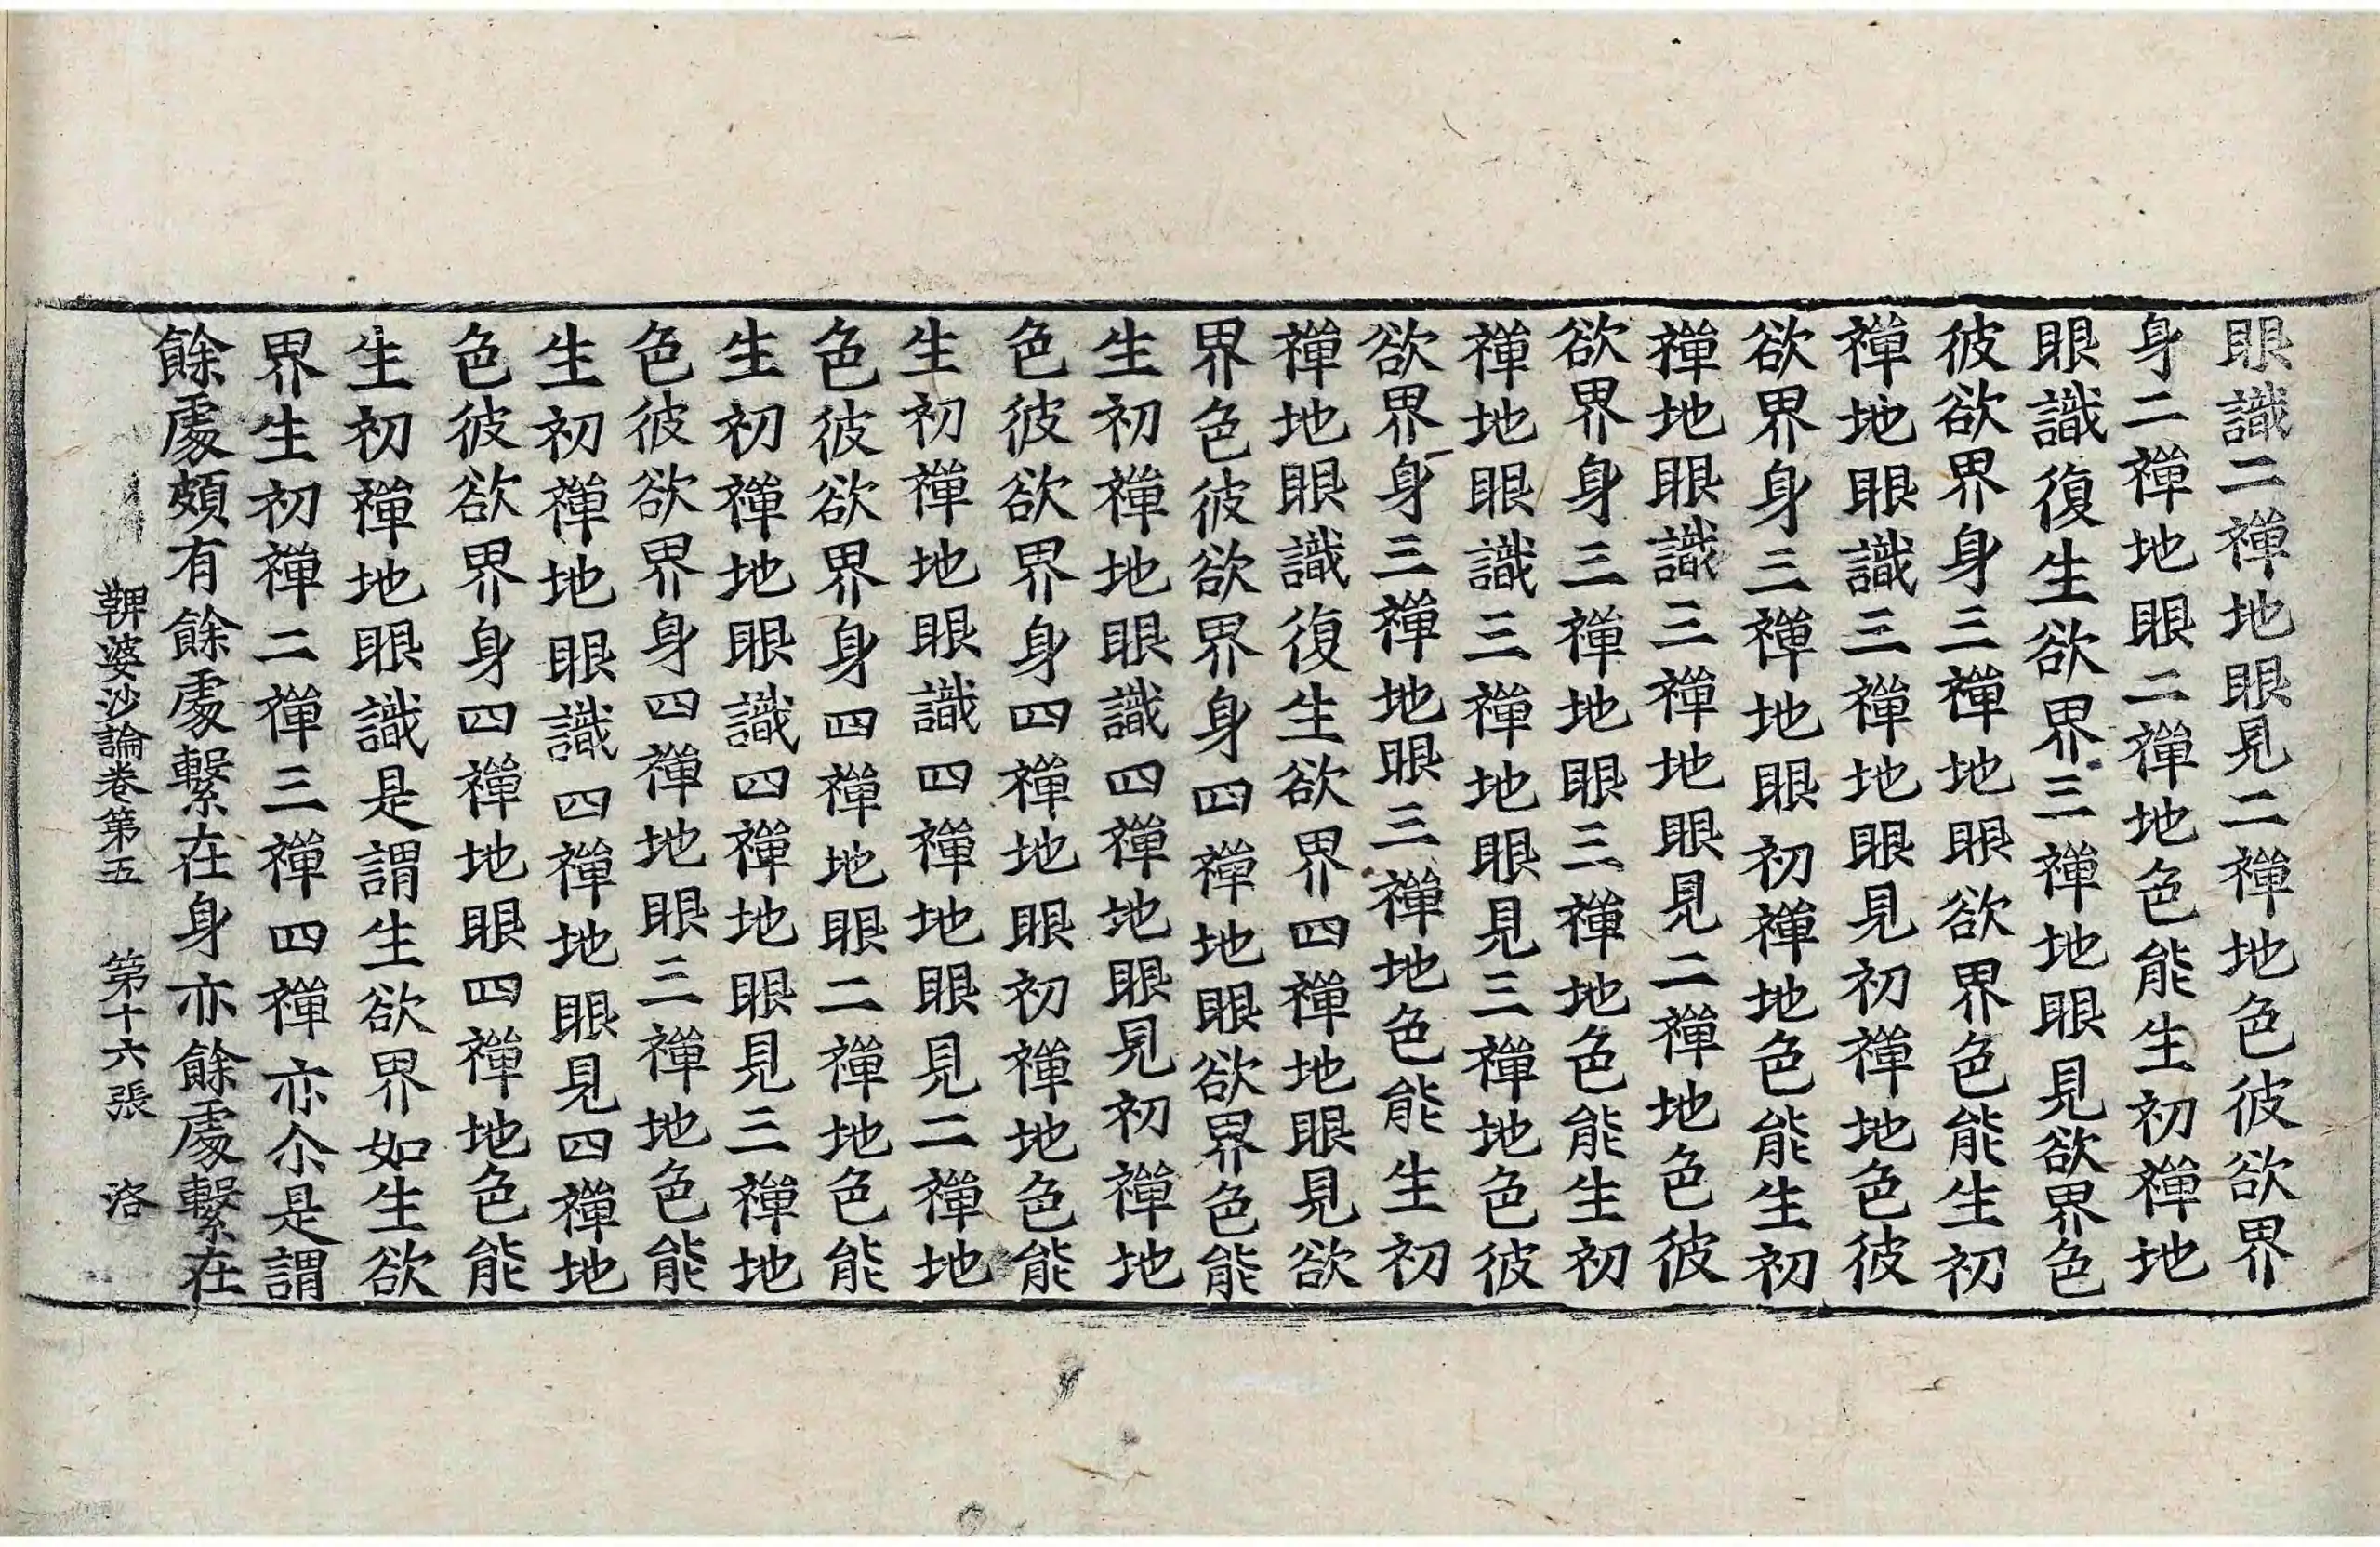 眼識二禪地眼見二禪地色彼欲界
身二禪地眼二禪地色能生初禪地
眼識復生欲界三禪地眼見欲界色
彼欲界身三禪地眼欲界色能生初
禪地眼識三禪地眼見初禪地色彼
欲界身三禪地眼初禪地色能生初
禪地眼識三禪地眼見二禪地色彼
欲界身三禪地眼三禪地色能生初
禪地眼識三禪地眼見三禪地色彼
欲界身三禪地眼三禪地色能生初
禪地眼識復生欲界四禪地眼見欲
界色彼欲界身四禪地眼欲界色能
生初禪地眼識四禪地眼見初禪地
色彼欲界身四禪地眼初禪地色能
生初禪地眼識四禪地眼見二禪地
色彼欲界身四禪地眼二禪地色能
生初禪地眼識四禪地眼見三禪地
色彼欲界身四禪地眼三禪地色能
生初禪地眼識四禪地眼見四禪地
色彼欲界身四禪地眼四禪地色能
生初禪地眼識是謂生欲界如生欲
界生初禪二禪三禪四禪亦尒是謂
餘處頗有餘處繫在身亦餘處繫在
鞞婆沙論卷第五 第十六張 洛